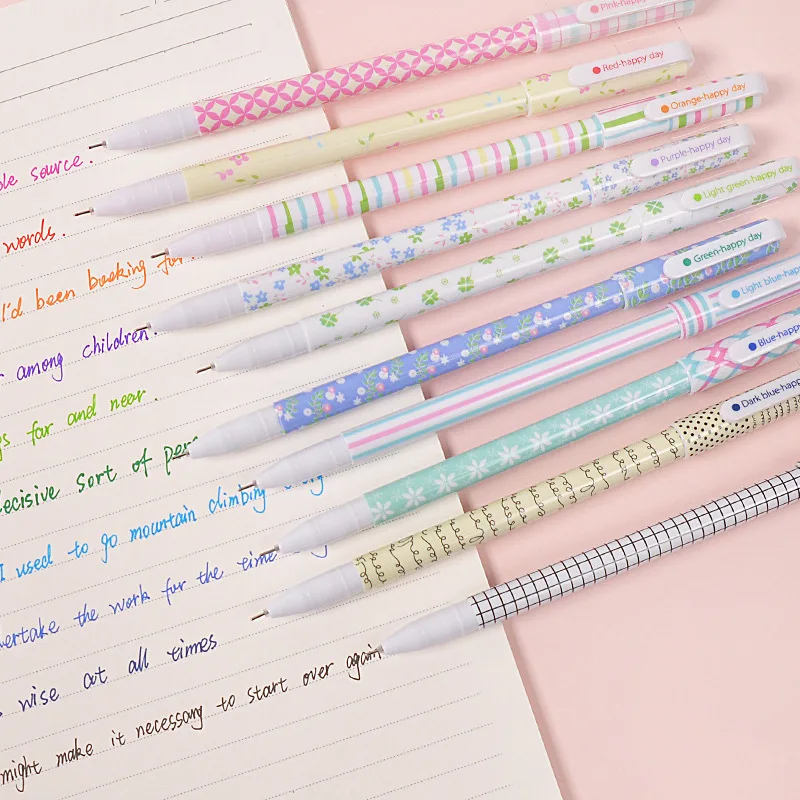 Pink-happy day
Red-happy day
Orange-happy day
Purple-happy day
Light green-happy day
Green-happy day
Light blue-happ
Blue-happ
Dark blue-happ
source.
words.
I'd been booking for
among children.
far and near.
decisive sort of
I used to go mountain climbing
the work for the time
wise at all times
might make it necessary to start over again